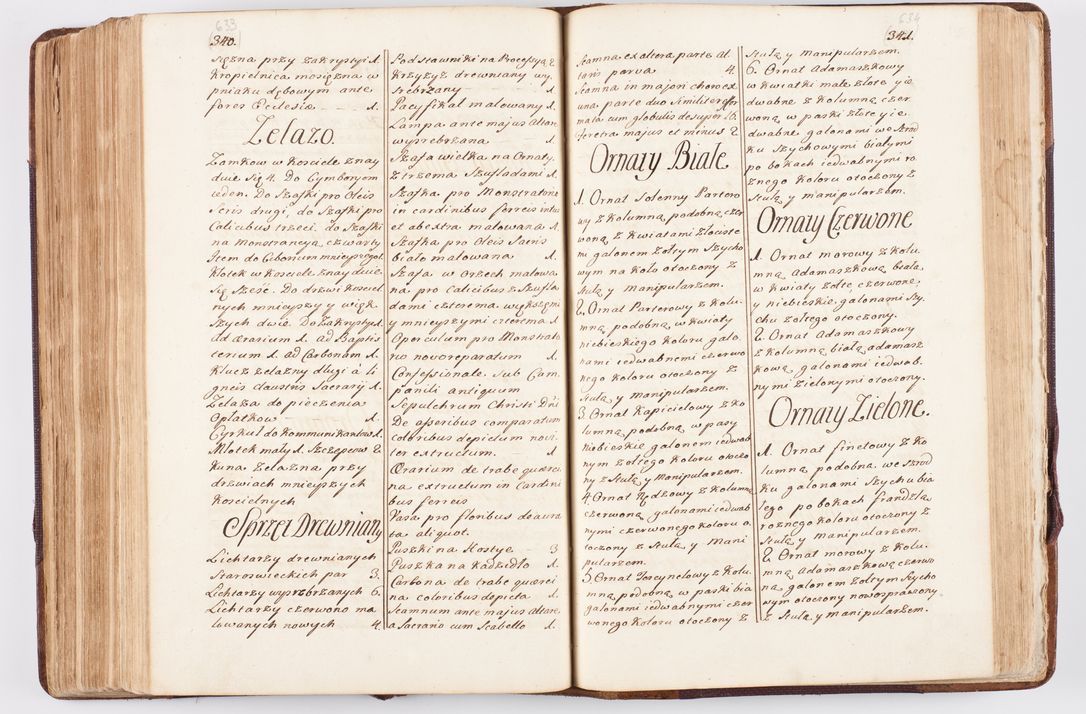 633
340.
siężna przy zakrystyi 1.
Kropielnica mosiężna w
pniaku dębowym ante
fores Ecclesiæ 1.
Zelazo.
Zamkow w Kosciele znay
duie się 4. Do Cymboryem
ieden. Do Szafki pro Oleis
Scris drugi, do Szafki pro
Calicibus trzeci, do Szafki
na Monstrancyą czwarty
Item do Ciborium mnieyszego 1.
Klotek w Kosciele znay duie
się sześć. Do drzwi Kosciel
nych mnieyszy y więk
szych dwie. Do Zakrystyi 1.
ad Ærarium 1. ad Baptis
terium 1. ad Carbonam 1.
Klucz żelazny długi à li
gneis claustris Sacrarij 1.
Zelaza do pieczenia
Opłatkow 1.
Cyrkuł do Kommunikantow 1.
Młotek mały 1. Szczypcow 2.
Kuna żelazna przy
drzwiach mnieyszych
Koscielnych
Sprzęt Drewniany
Lichtarzy drewnianych
staroswieckich par 3.
Lichtarzy wysrebrzanych 6.
Lichtarzy czerwono ma
lowanych nowych 4.
Podstawniki na Processyą 2
Krzyżyk drewniany wy
srebrzany 1.
Pacyfikał malowany 1.
Lampa ante majus Altare
wysrebrzana 1.
Szafa wielka na Ornaty
z trzema Szufladami 1.
Szafka pro Monstratorio
in cardinibus ferreis intus
et ab extra malowana 1.
Szafka pro Oleis Sacris
biało malowana 1.
Szafa w Orzech malowa
na pro Calicibus z Szufla
dami czterema większemi
y mnieyszymi czterema 1.
Operculum pro Monstrato
rio novo reparatum 1.
Confessionale sub Cam
panili antiquum
Sepulchrum Christi Dñi
De asseribus comparatum
coloribus depictum novi
ter extructum. 1.
Ærarium de trabe querci
na extructum in cardini
bus ferreis
Vasa pro floribus deaura
ta aliquot.
Puszki na Hostye 3
Puszka na Kadzidło 1.
Carbona de trabe querci
na coloribus depicta 1.
Scamnum ante majus Altare
a Sacrario cum Scabello 1.
634
341.
Scamna ex altera parte al
taris parva 4.
Scamna in majori choro ex
una parte duo similiter
mala cum globulis desuper 16.
Feretra majus et minus 2
Ornaty Białe
1. Ornat solenny Partero
wy z Kolumną podobną czer
woną z Kwiatami złociste
mi galonem żołtym Szycho
wym na koło otoczony z
Stułą y manipularzem.
2. Ornat Parterowy z Kolu
mną podobną w kwiaty
niebieskiego koloru galo
nami iedwabnemi czerwo
nego koloru otoczony z
stułą y manipularzem.
3. Ornat Kapicielowy z Ko
lumną podobną w pasy
niebieskie galonem iedwab
nym żołtego koloru otoczo
ny z Stułą y Manipularzem.
4. Ornat Rzędzowy z Kolumną
czerwoną galonami iedwab
nymi czerwonego koloru o
toczony z Stułą y Mani
pularzem.
5. Ornat Torcynelowy z Kolu
mną podobną w paski bia
galonami iedwabnymi czer
wonego koloru otoczony z
stułą y manipularzem.
6. Ornat Adamaszkowy
w kwiatki małe złote y ie
dwabne z Kolumną czer
woną w paski złote y ie
dwabne galonami we szrod
ku Szychowymi białymi
po bokach iedwabnymi ro
żnego koloru otoczony z
Stułą y manipularzem.
Ornaty Czerwone
1. Ornat morowy z Kolu
mną Adamaszkową białą
w kwiaty żołte czerwone
y niebieskie galonami Szy
chu żołtego otoczony.
2. Ornat Adamaszkowy
z Kolumną białą adamasz
kową galonami iedwab
nymi zielonymi otoczony.
Ornaty Zielone.
1. Ornat finetowy z Ko
lumną podobną we szrod
ku galonami Szychu bia
łego po bokach frandzlą
rożnego koloru otoczony z
Stułą y manipularzem.
2. Ornat morowy z Kolu
mną Adamaszkową czerwo
ną galonem żołtym Szycho
wym otoczony nowosprawiony
z Stułą y manipularzem.